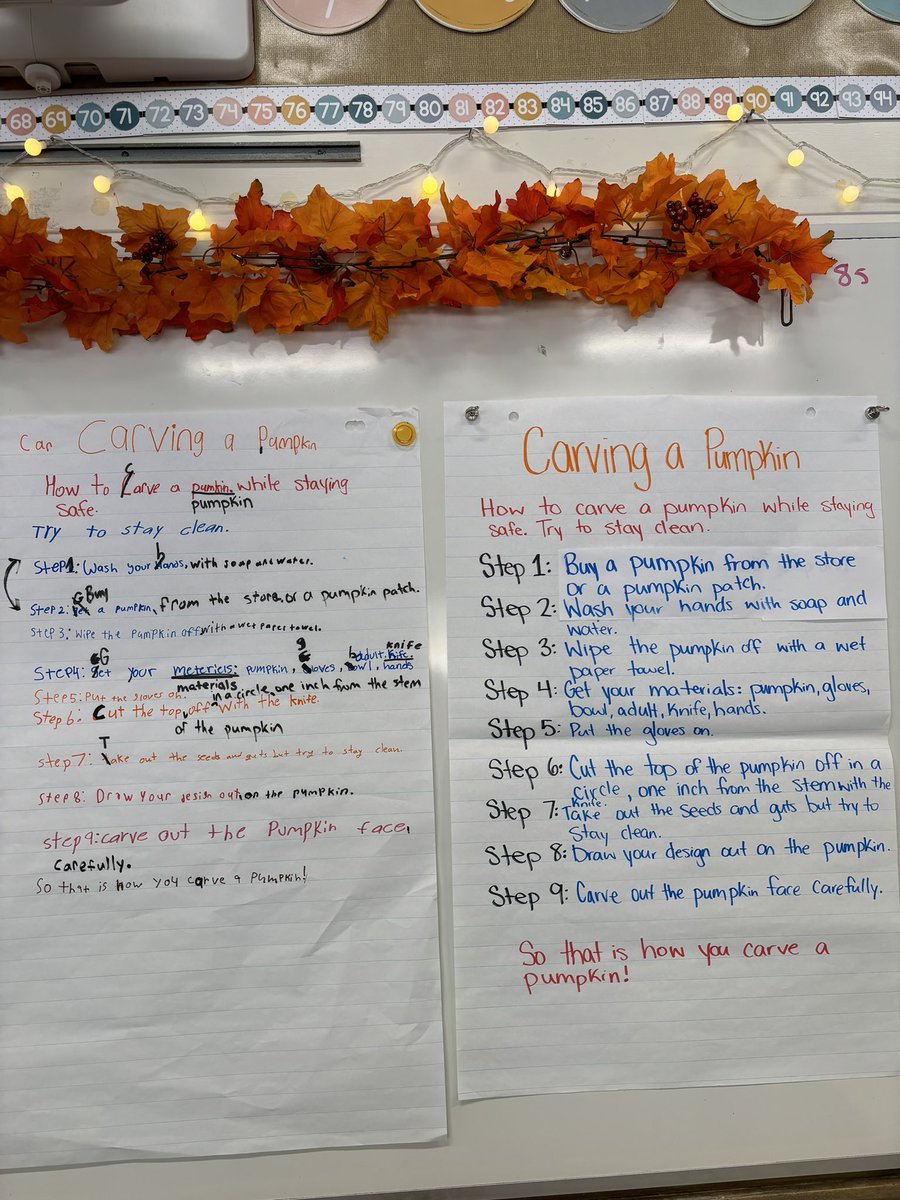 68 69 70 71 72 73 74 75 76 77 78 79 80 81 82 83 84 85 86 87 88 89 90 91 92 93 94
8s
Car Carving a Pumpkin
How to Carve a pumkin. while staying
pumpkin
safe.
Try to stay clean.
Step1: Wash your hands, with soap and water.
Buy
Step2: a pumpkin, from the store, or a pumpkin patch.
Step 3: Wipe the pumpkin off with a wet paper towel.
knife
Step4: Get your metericls: pumpkin, gloves, bowl, adult, knife, hands
materials
Step5: Put the gloves on.
in a circle, one inch from the stem
Step 6: Cut the top off with the knife.
of the pumpkin
T
step7: ake out the seeds and guts but try to stay clean.
step 8: Draw your design out on the pumpkin.
step9: carve out the Pumpkin face,
carefully.
So that is how you carve a pumpkin!
Carving a Pumpkin
How to carve a pumpkin while staying
safe. Try to stay clean.
Step 1: Buy a pumpkin from the store
or a pumpkin patch.
Step 2: Wash your hands with soap and
water.
Step 3: Wipe the pumpkin off with a wet
paper towel.
Step 4: Get your materials: pumpkin, gloves,
bowl, adult, knife, hands.
Step 5: Put the gloves on.
Step 6: Cut the top of the pumpkin off in a
circle, one inch from the stem with the
knife.
Step 7: Take out the seeds and guts but try to
stay clean.
Step 8: Draw your design out on the pumpkin.
Step 9: Carve out the pumpkin face carefully.
So that is how you carve a
pumpkin!